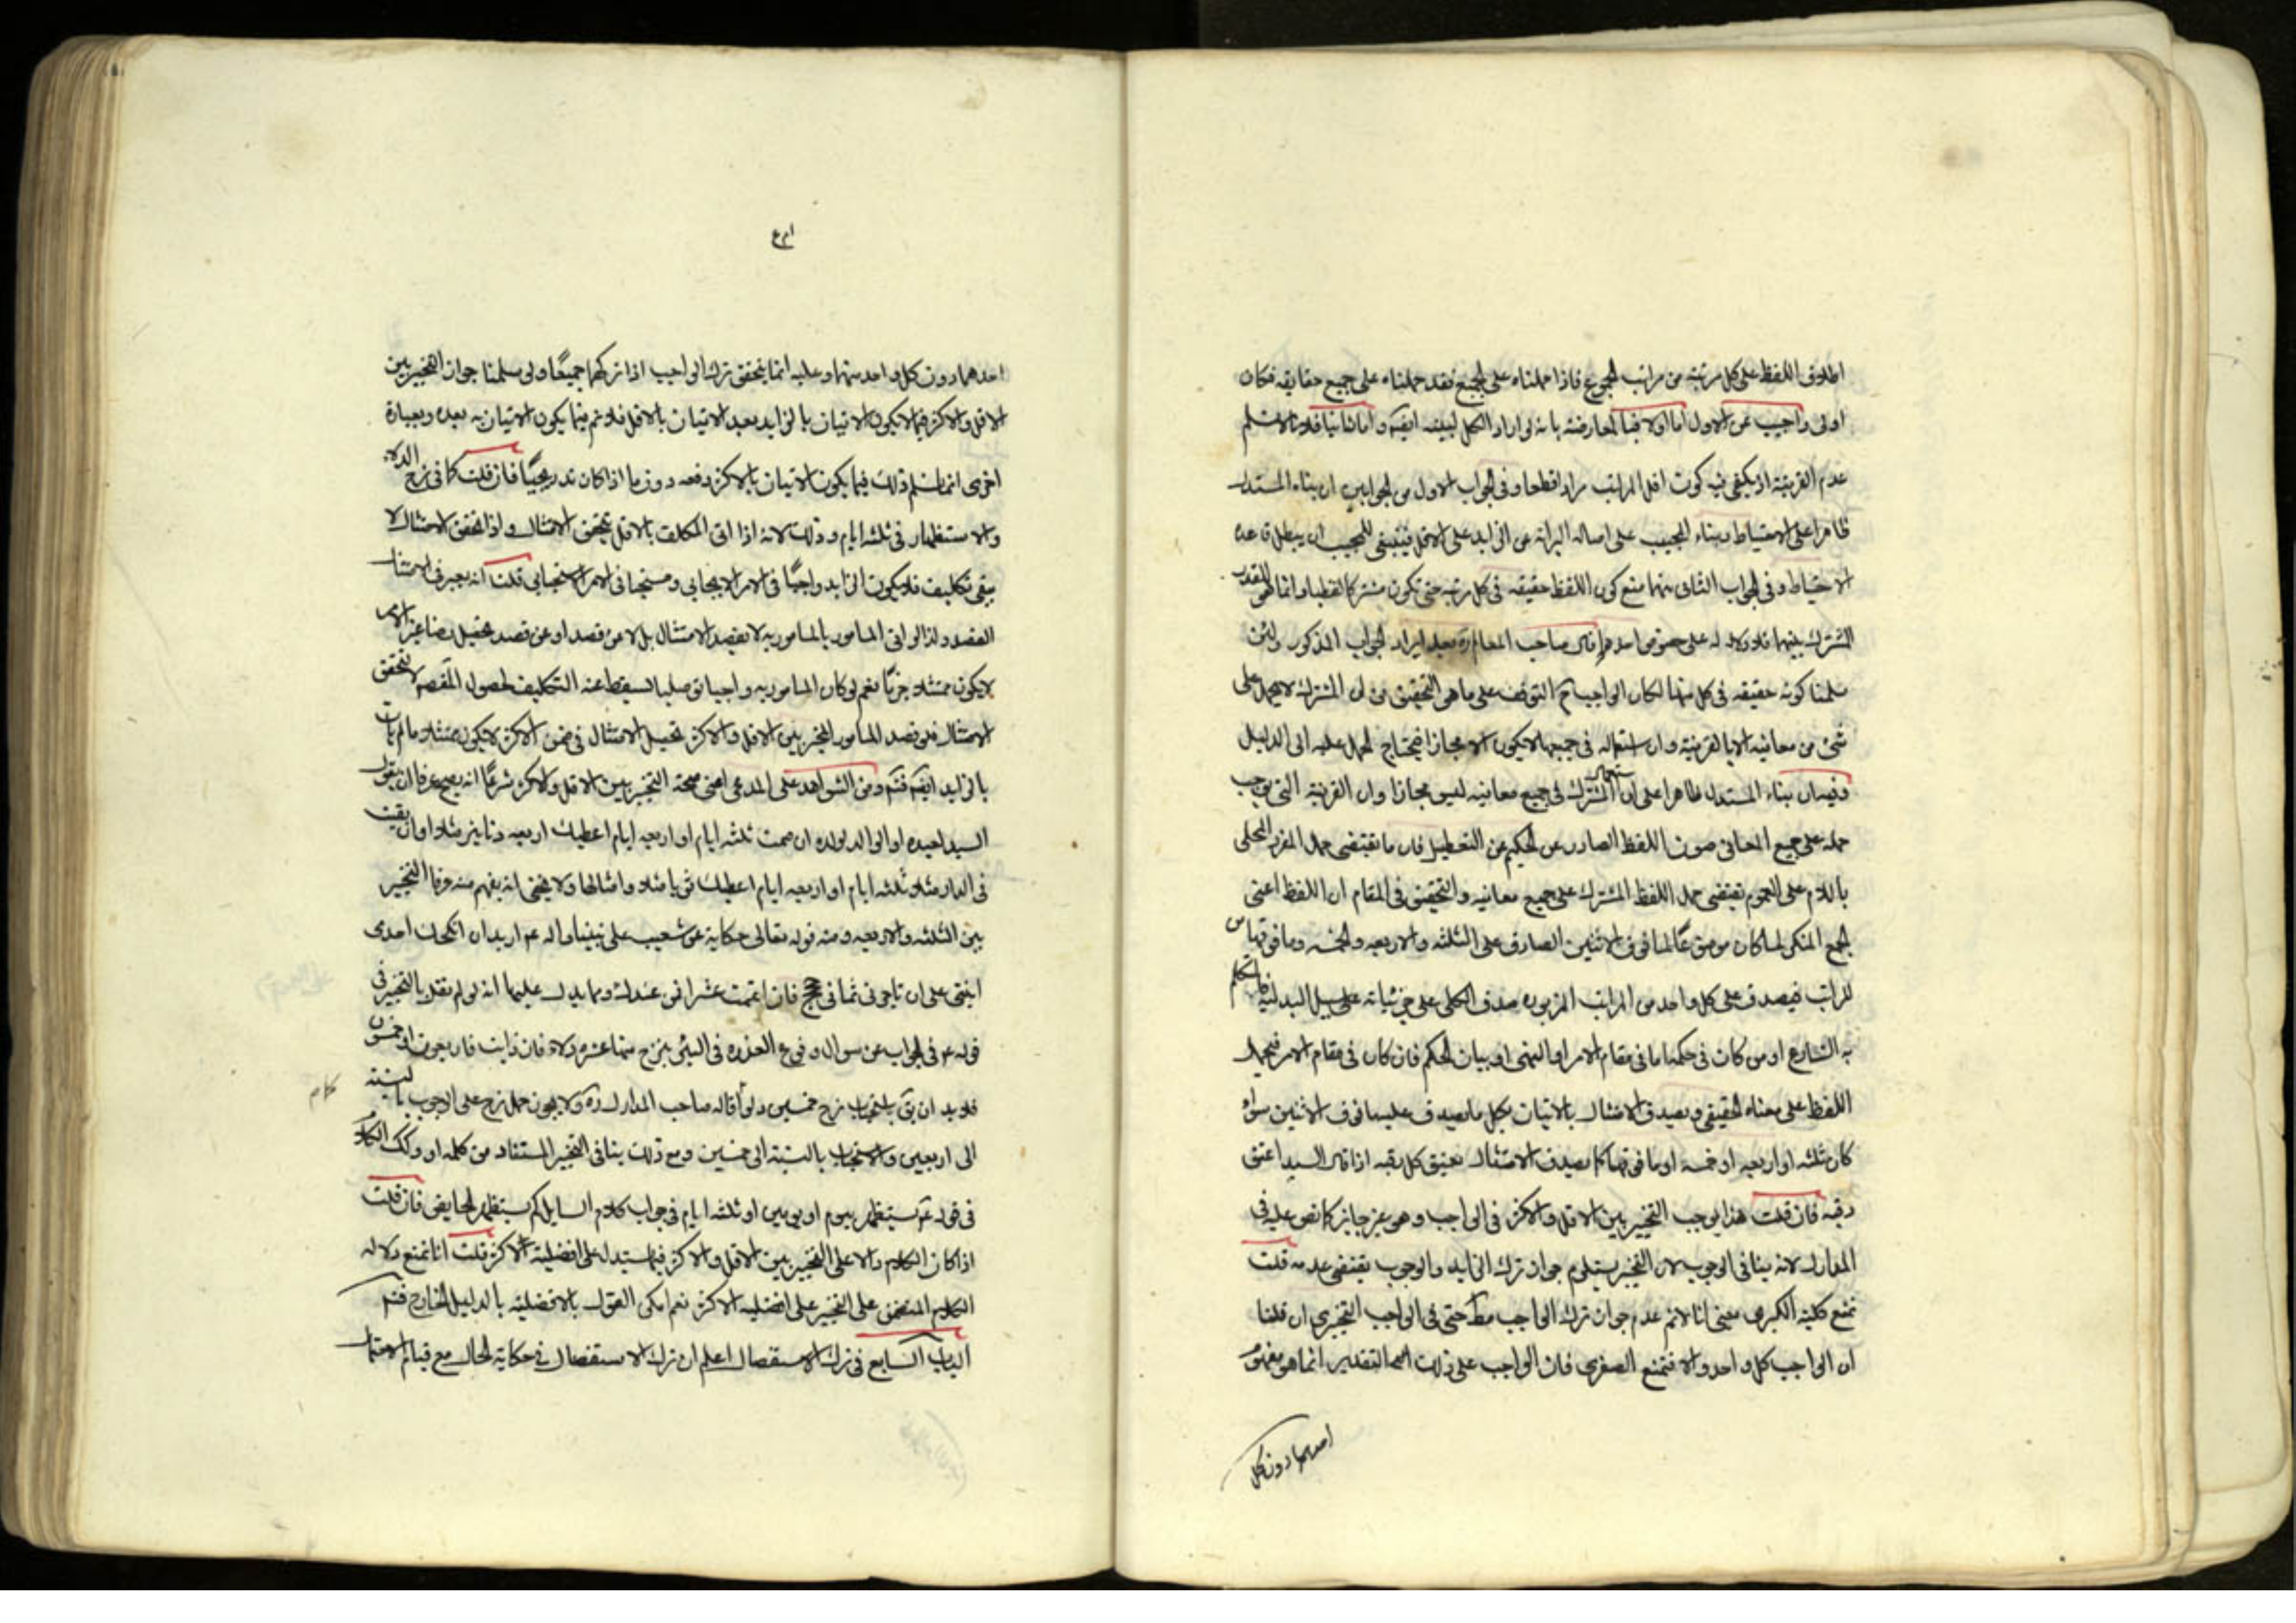 اطلاق اللفظ على كل مرتبة من مراتب الجموع فاذا حملناه على الجميع فقد حملناه على جميع حقايقه فكان
اولى واجيب عن الاول اما اولا فبالمعارضة بانه لو اراد الكل لبينه ايضا واما ثانيا فلانا لا نسلم
عدم القرينة اذ يكفى فيه كون اقل المراتب مرادا قطعا وفى الجواب الاول من الجوابين ان بناء المستدل
ظاهرا على الاحتياط وبناء المجيب على اصالة البراءة عن الزايد على الاقل فينبغى للمجيب ان يبطل قاعدة
الاحتياط وفى الجواب الثانى منهما منع كون اللفظ حقيقة فى كل مرتبة حتى تكون مشتركا لفظيا وانما هو للقدر
المشترك بينهما فلا دلالة له على خصوص احدها قال صاحب المعالم ره بعد ايراد الجواب المذكور ولئن
سلمنا كونه حقيقة فى كل منها لكان الواجب ح التوقف على ما هو التحقيق من ان المشترك لا يحمل على
شئ من معانيه الا بالقرينة وان استعماله فى جميعها لا يكون الا مجازا فيحتاج الحمل عليه الى الدليل
وفيه ان بناء المستدل ظاهرا على ان استعمال المشترك فى جميع معانيه ليس مجازا وان القرينة التى توجب
حمله على جميع المعانى صون اللفظ الصادر عن الحكيم عن التعطيل فان ما يقتضى حمل المفرد المحلى
باللام على العموم يقتضى حمل اللفظ المشترك على جميع معانيه والتحقيق فى المقام ان اللفظ اعنى
الجمع المنكر لما كان موضوعا لما فوق الاثنين الصادق على الثلثة والاربعة والخمسة وما فوقها من
المراتب فيصدق على كل واحد من المراتب المزبورة صدق الكلى على جزئياته على سبيل البدلية فاذا تكلم
به الشارع او من كان فى حكمه اما فى مقام الامر او النهى او بيان الحكم فان كان فى مقام الامر فيحمل
اللفظ على معناه الحقيقى ويصدق الامتثال بالاتيان بكل ما يصدق عليه ما فوق الاثنين سواء
كان ثلثة او اربعة او خمسة او ما فوقها كما يصدق الامتثال بعتق كل رقبة اذا قال السيد اعتق
رقبة فان قلت هذا يوجب التخيير بين الاقل والاكثر فى الواجب وهو غير جايز كما نص عليه فى
المدارك لانه ينافى الوجوب لان التخيير يستلزم جواز ترك الزايد والوجوب يقتضى عدمه قلت
نمنع كلية الكبرى بمعنى انا لا نم عدم جواز ترك الواجب مط حتى فى الواجب التخييرى ان قلنا
ان الواجب كل واحد والا فنمنع الصغرى فان الواجب على ذلك التقدير انما هو مفهوم
احدهما دون كل
احدهما دون كل واحد منهما وعليه انما يتحقق ترك الواجب اذا تركهما جميعا ولو سلمنا جواز التخيير بين
الاقل والاكثر فيما لا يكون الاتيان بالزايد بعد الاتيان بالاقل فلا نم فيما يكون الاتيان به بعده وبعبارة
اخرى انما نسلم ذلك فيما يكون الاتيان بالاكثر دفعة دون ما اذا كان تدريجيا فان قلت كما فى نزح الدلاء
والاستظهار فى ثلثة ايام وذلك لانه اذا اتى المكلف بالاقل يتحقق الامتثال واذا تحقق الامتثال لا
يبقى تكليف فلا يكون الزايد واجبا فى الامر الايجابى ومستحبا فى الامر الاستحبابى قلت انه يعتبر فى الامتثال
القصد ولذا لو اتى المامور بالمامور به لا بقصد الامتثال بل لا عن قصد او عن قصد تحصيل رضا غير الامر
لا يكون ممتثلا جزما نعم لو كان المامور به واجبا توصليا لسقط عنه التكليف لحصول المقصود لا لتحقق
الامتثال فلو قصد المامور المخير بين الاقل والاكثر تحصيل الامتثال فى ضمن الاكثر لا يكون ممتثلا ما لم يات
بالزايد ايضا فتم ومن الشواهد على المدعى اعنى صحة التخيير بين الاقل والاكثر شرعا انه يصح عرفا ان يقول
السيد لعبده او الوالد لولده ان صمت ثلثة ايام او اربعة ايام اعطيك اربعة دنانير مثلا او ان بقيت
فى الدار مثلا ثلثة ايام او اربعة ايام اعطيك ثوبا مثلا وامثالها ولا يخفى انه يفهم منه عرفا التخيير
بين الثلثة والاربعة ومنه قوله تعالى حكاية عن شعيب على نبينا واله عم اريد ان انكحك احدى
ابنتى على ان تاجرنى ثمانى حجج فان اتممت عشرا فمن عندك ومما يدل عليها انه لو لم نقل بالتخيير فى
قوله عم فى الجواب عن سوال وقوع العذرة فى البئر ينزح منها عشر دلاء فان ذابت فاربعون او خمسون
فلا بد ان يق باستحباب نزح خمسين ولو قاله صاحب المدارك ره ولا يجوز حمل نزح على الوجوب بالنسبة
الى اربعين والاستحباب بالنسبة الى خمسين ومع ذلك ينافى التخيير المستفاد من كلمة او وكذلك الكلام
فى قوله عم تستظهر بيوم او يومين او ثلثة ايام فى جواب كلام السايل كم تستظهر الحايض فان قلت
اذا كان الكلام دالا على التخيير بين الاقل والاكثر فبم يستدل على افضلية الاكثر قلت انا نمنع دلالة
الكلام المتضمن على التخيير على افضلية الاكثر نعم يمكن القول بالافضلية بالدليل الخارج فتم
الباب السابع فى ترك الاستفصال اعلم ان ترك الاستفصال فى حكاية الحال مع قيام الاحتمال
كلام